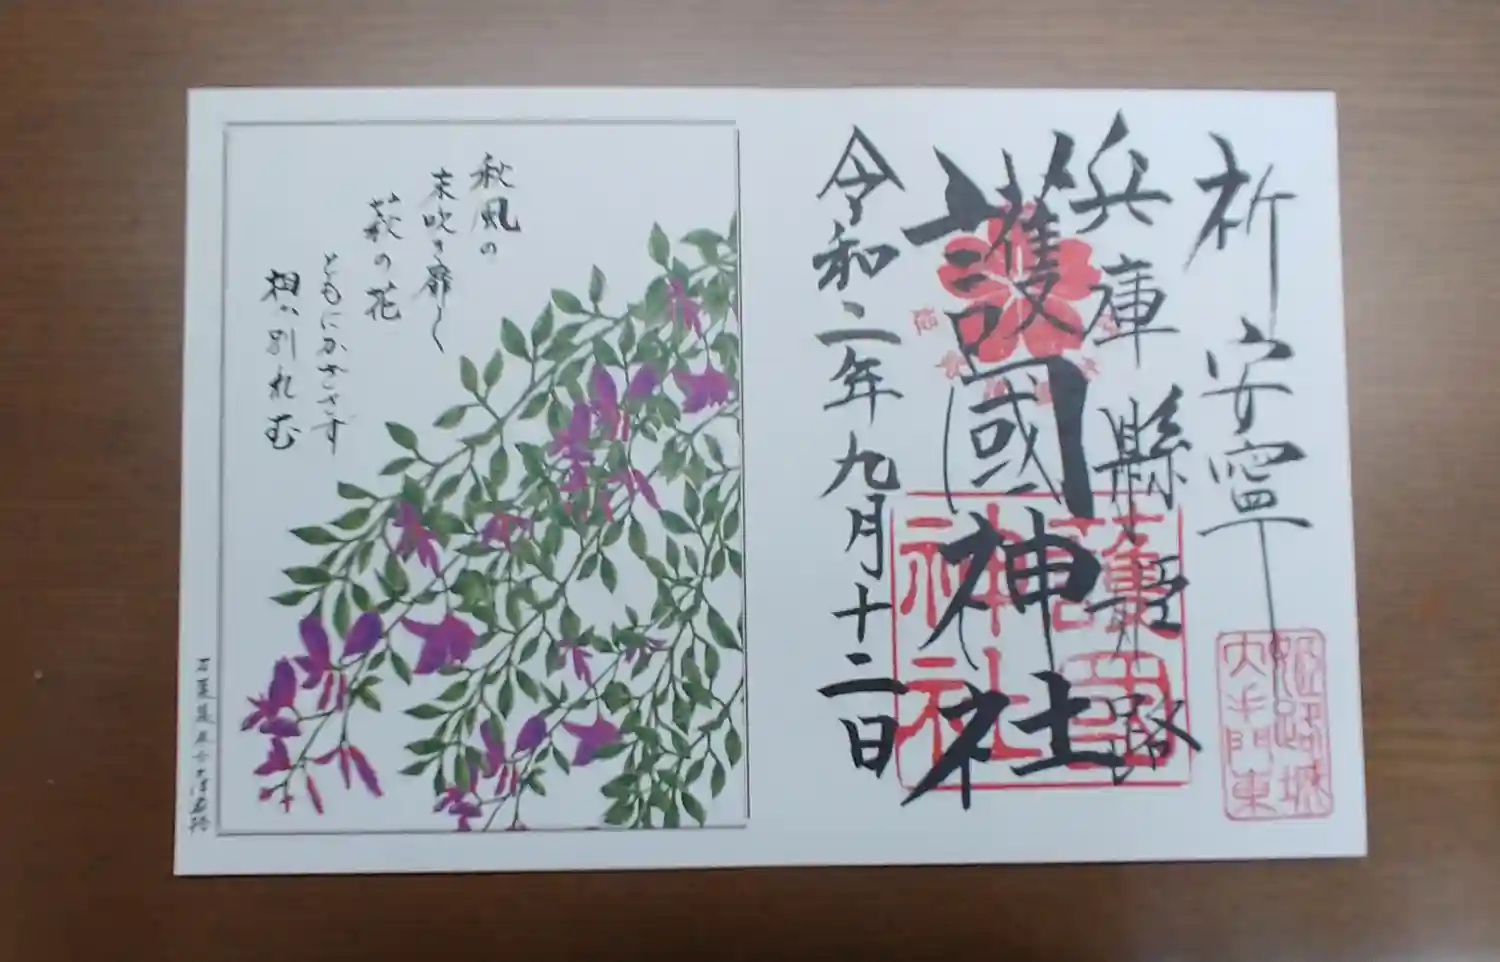 祈安寧
姫路城
大手門東
兵庫縣姫路
護國神社
護國
神社
令和二年九月十二日
秋風の
末吹き靡く
萩の花
ともにかざさず
相か別れむ
万葉集